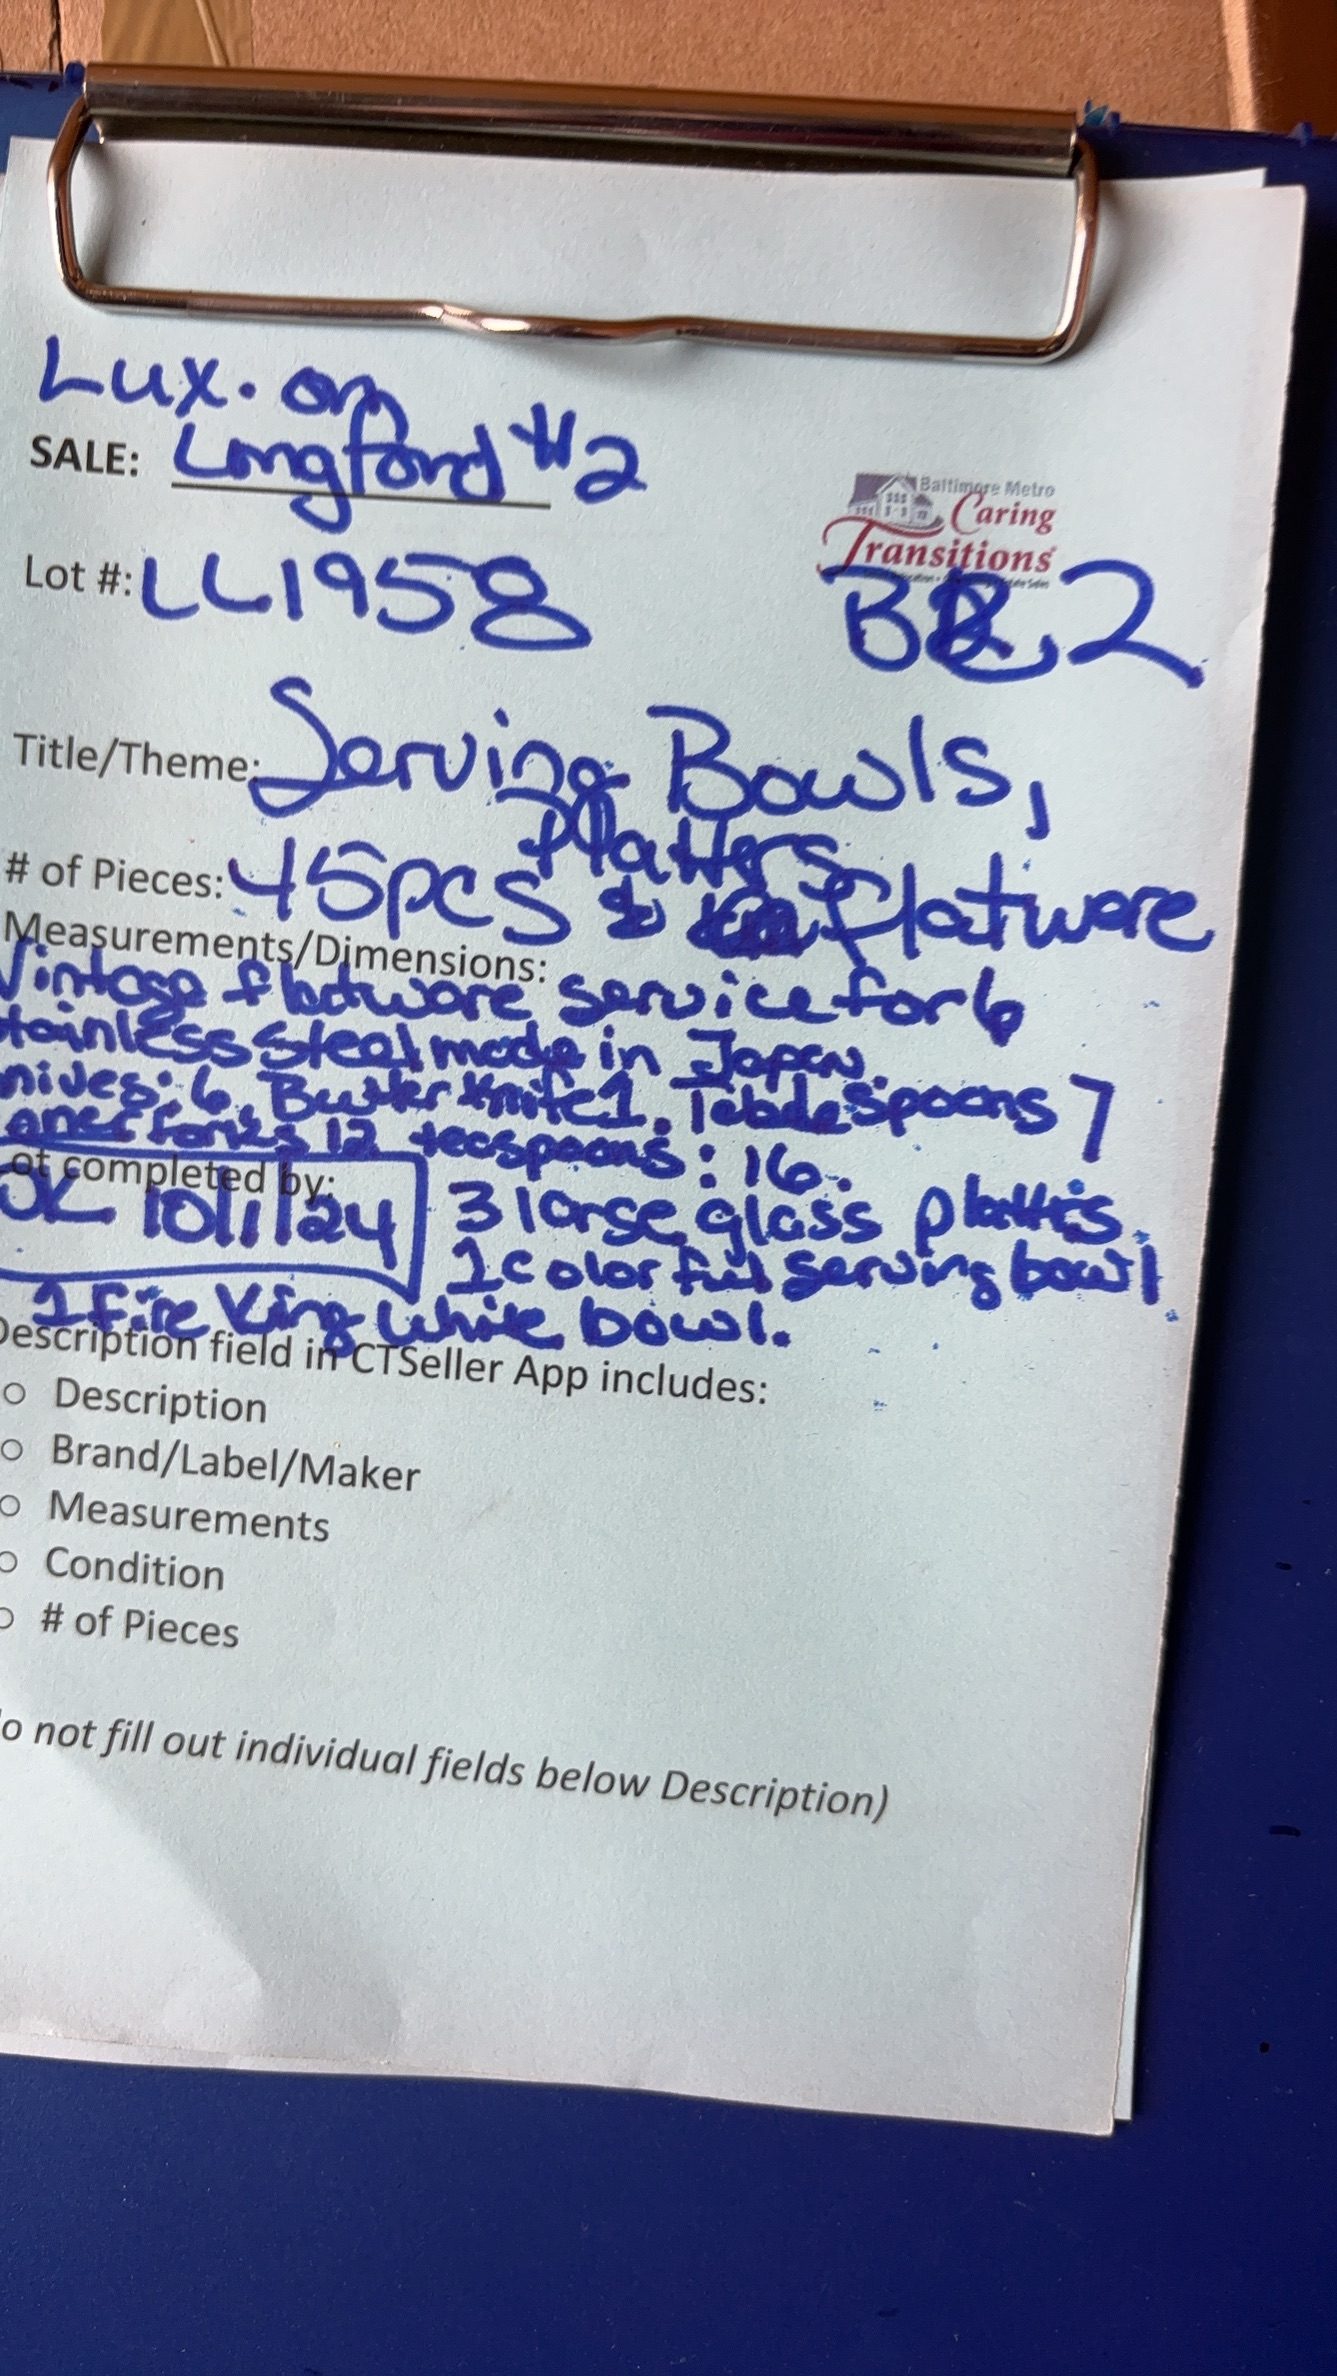 Lux. on
SALE: Longford #2
Baltimore Metro
Caring
Transitions
Lot #: LL1958
2
Title/Theme: Serving Bowls,
Platters
# of Pieces: 45pcs & flatware
Measurements/Dimensions:
Vintage flatware service for 6
tainless steel made in Japan.
nives: 6. Butter knife 1. Tablespoons 7
forks 12 teaspoons: 16.
ot completed by:
10/1/24 3 large glass platters.
1 colorful serving bowl
1 Fire King white bowl.
Description field in CTSeller App includes:
o Description
o Brand/Label/Maker
o Measurements
o Condition
o # of Pieces
o not fill out individual fields below Description)